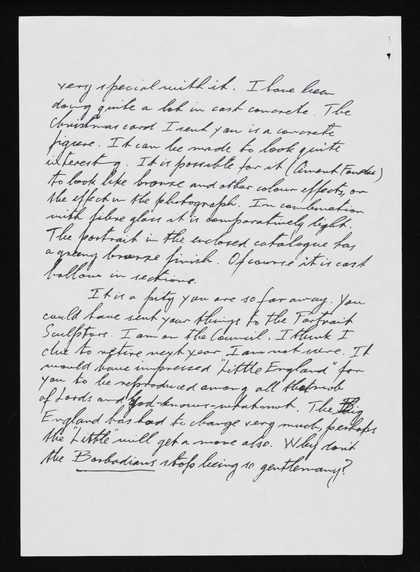 very special with it. I have been
doing quite a lot in cast concrete. The
Christmas card I sent you is a concrete
figure. It can be made to look quite
interesting. It is possible for it (Ciment Fondue)
to look like bronze and other colour effects, or
the effect in the photograph. In combination
with fibre glass it is comparatively light.
The portrait in the enclosed catalogue has
a greeny bronze finish. Of course it is cast
hollow in sections.
It is a pity you are so far away. You
could have sent your things to the Portrait
Sculptors. I am on the Council. I think I
due to retire next year I am not sure. It
would have impressed 'Little England' for
you to be reproduced among all the mob
of Lords and God-knows-what-not. The Big
England has had to change very much, perhaps
the 'Little' will get a move also. Why don't
the Barbadians stop being so gentlemany?